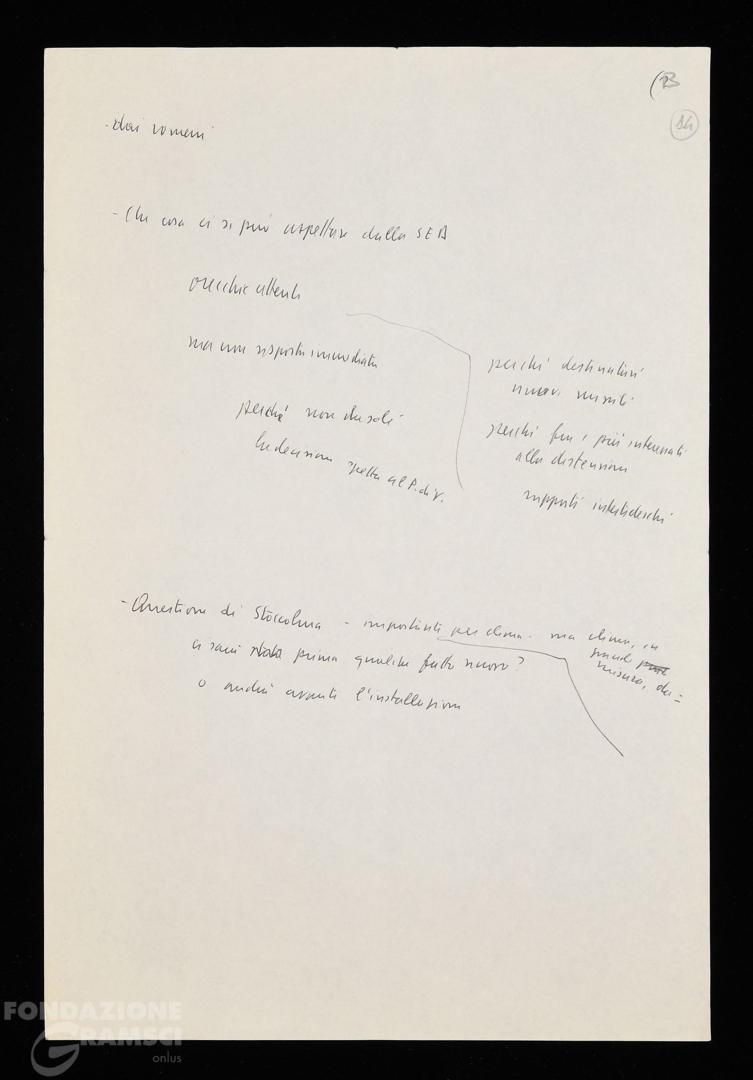 (B
14
- dai romeni
- Che cosa ci si può aspettare dalla SED
orecchie attente
ma non risposte immediate
perché non da soli
la decisione spetta al P. di V.
perché destinatari
nuovi missili
perché fra i più interessati
alla distensione
rapporti intertedeschi
- Questione di Stoccolma - importante per clima - ma clima, in
misura, da=
ci sarà stato prima qualche fatto nuovo?
o andrà avanti l'installazione
FONDAZIONE
GRAMSCI
onlus